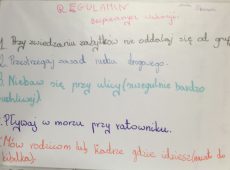 REGULAMIN
bezpiecznych wakacji.
1. Przy zwiedzaniu zabytków nie oddalaj się od grupy
2. Przestrzegaj zasad ruchu drogowego.
3. Nie baw się przy ulicy (szczególnie bardzo
ruchliwej)
4. Pływaj w morzu przy ratowniku.
5. Mów rodzicom lub kadrze gdzie idziesz (